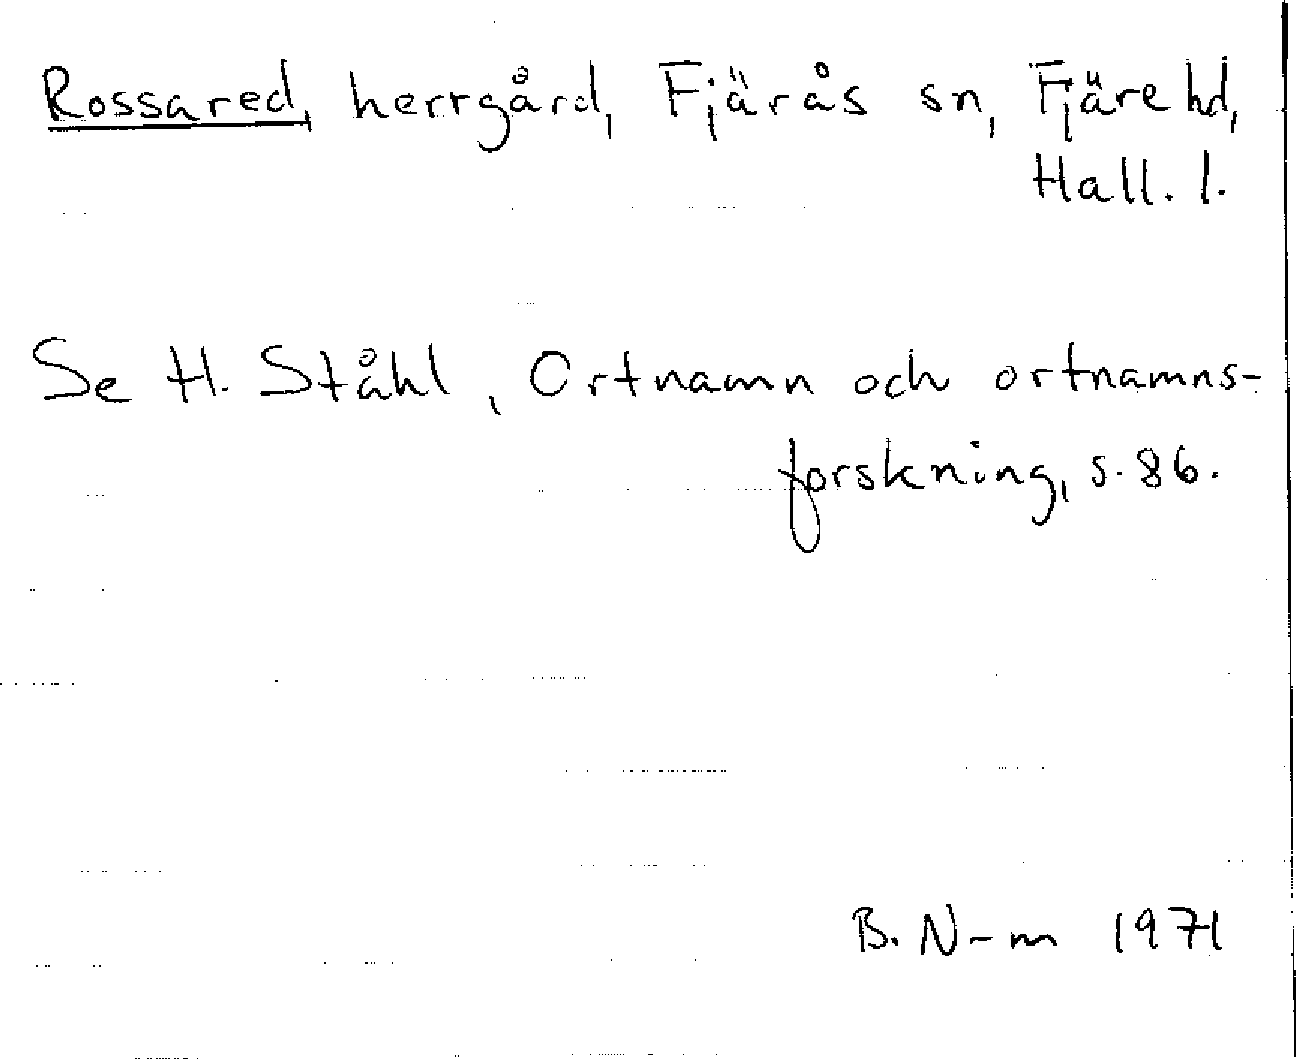 Rossared, herrgård, Fjärås sn, Fjäre hd,
Hall. l.
Se H. Ståhl, Ortnamn och ortnamns-
forskning, s. 86.
B. N-m 1971